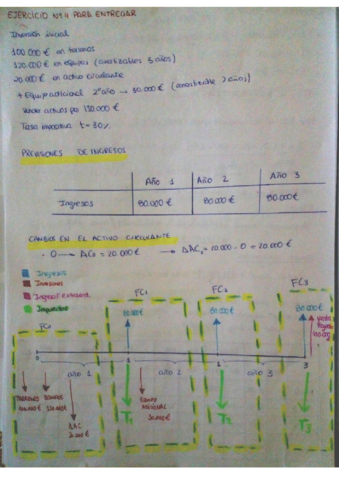 EJERCICIO Nº11 PARA ENTREGAR
Inversión inicial
100.000 € en terrenos
120.000 € en equipos (amortizables 5 años)
20.000 € en activo circulante
+ Equipo adicional 2º año → 30.000 € (amortizable 3 años)
Vende activos por 130.000 €
Tasa impositiva t = 30%
PREVISIONES DE INGRESOS
Año 1 Año 2 Año 3
Ingresos 80.000 € 80.000 € 80.000 €
CAMBIOS EN EL ACTIVO CIRCULANTE
· 0 → AC₀ = 20.000 € → ΔAC₀ = 20.000 - 0 = 20.000 €
Ingresos
Inversiones
Ingreso extraord.
Impuestos
FC₀ FC₁ FC₂ FC₃
80.000 € 80.000 € 80.000 €
0 1 3
año 1 año 2 año 3
TERRENOS EQUIPOS
ΔAC
20.000 €
EQUIPO
ADICIONAL
30.000 €
T₁ T₂ T₃